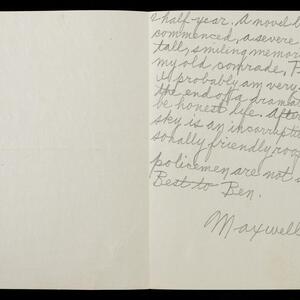 half-year. A novel
commenced, a severe
tall, smiling memor
my old comrade,
it probably am very
the end of a drama
be honest life. After
sky is an incorrupti
sonally friendly roo
policemen are not
Best to Ben.
Maxwell